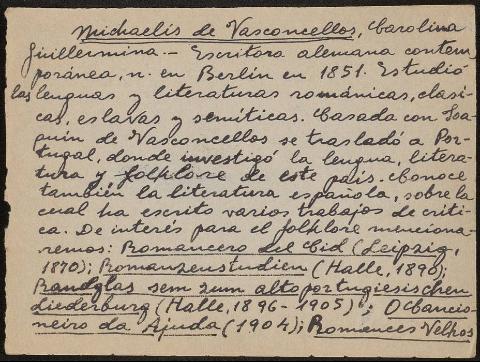 Michaelis de Vasconcellos, Carolina
Guillermina.- Escritora alemana contem
poránea, n. en Berlin en 1851. Estudió
las lenguas y literaturas románicas, clási-
cas, eslavas y semíticas. Casada con Joa-
quin de Vasconcellos se trasladó a Por-
tugal, donde investigó la lengua, litera-
tura y folklore de este pais. Conoce
también la literatura española, sobre la
cual ha escrito varios trabajos de criti-
ca. De interés para el folklore menciona-
remos: Romancero del Cid (Leipzig,
1870); Romanzenstudien (Halle, 1890);
Randglas sem zum altoportugiesischen
Liederburg (Halle, 1896-1905); O Cancio-
neiro da Ajuda (1904); Romances Velhos